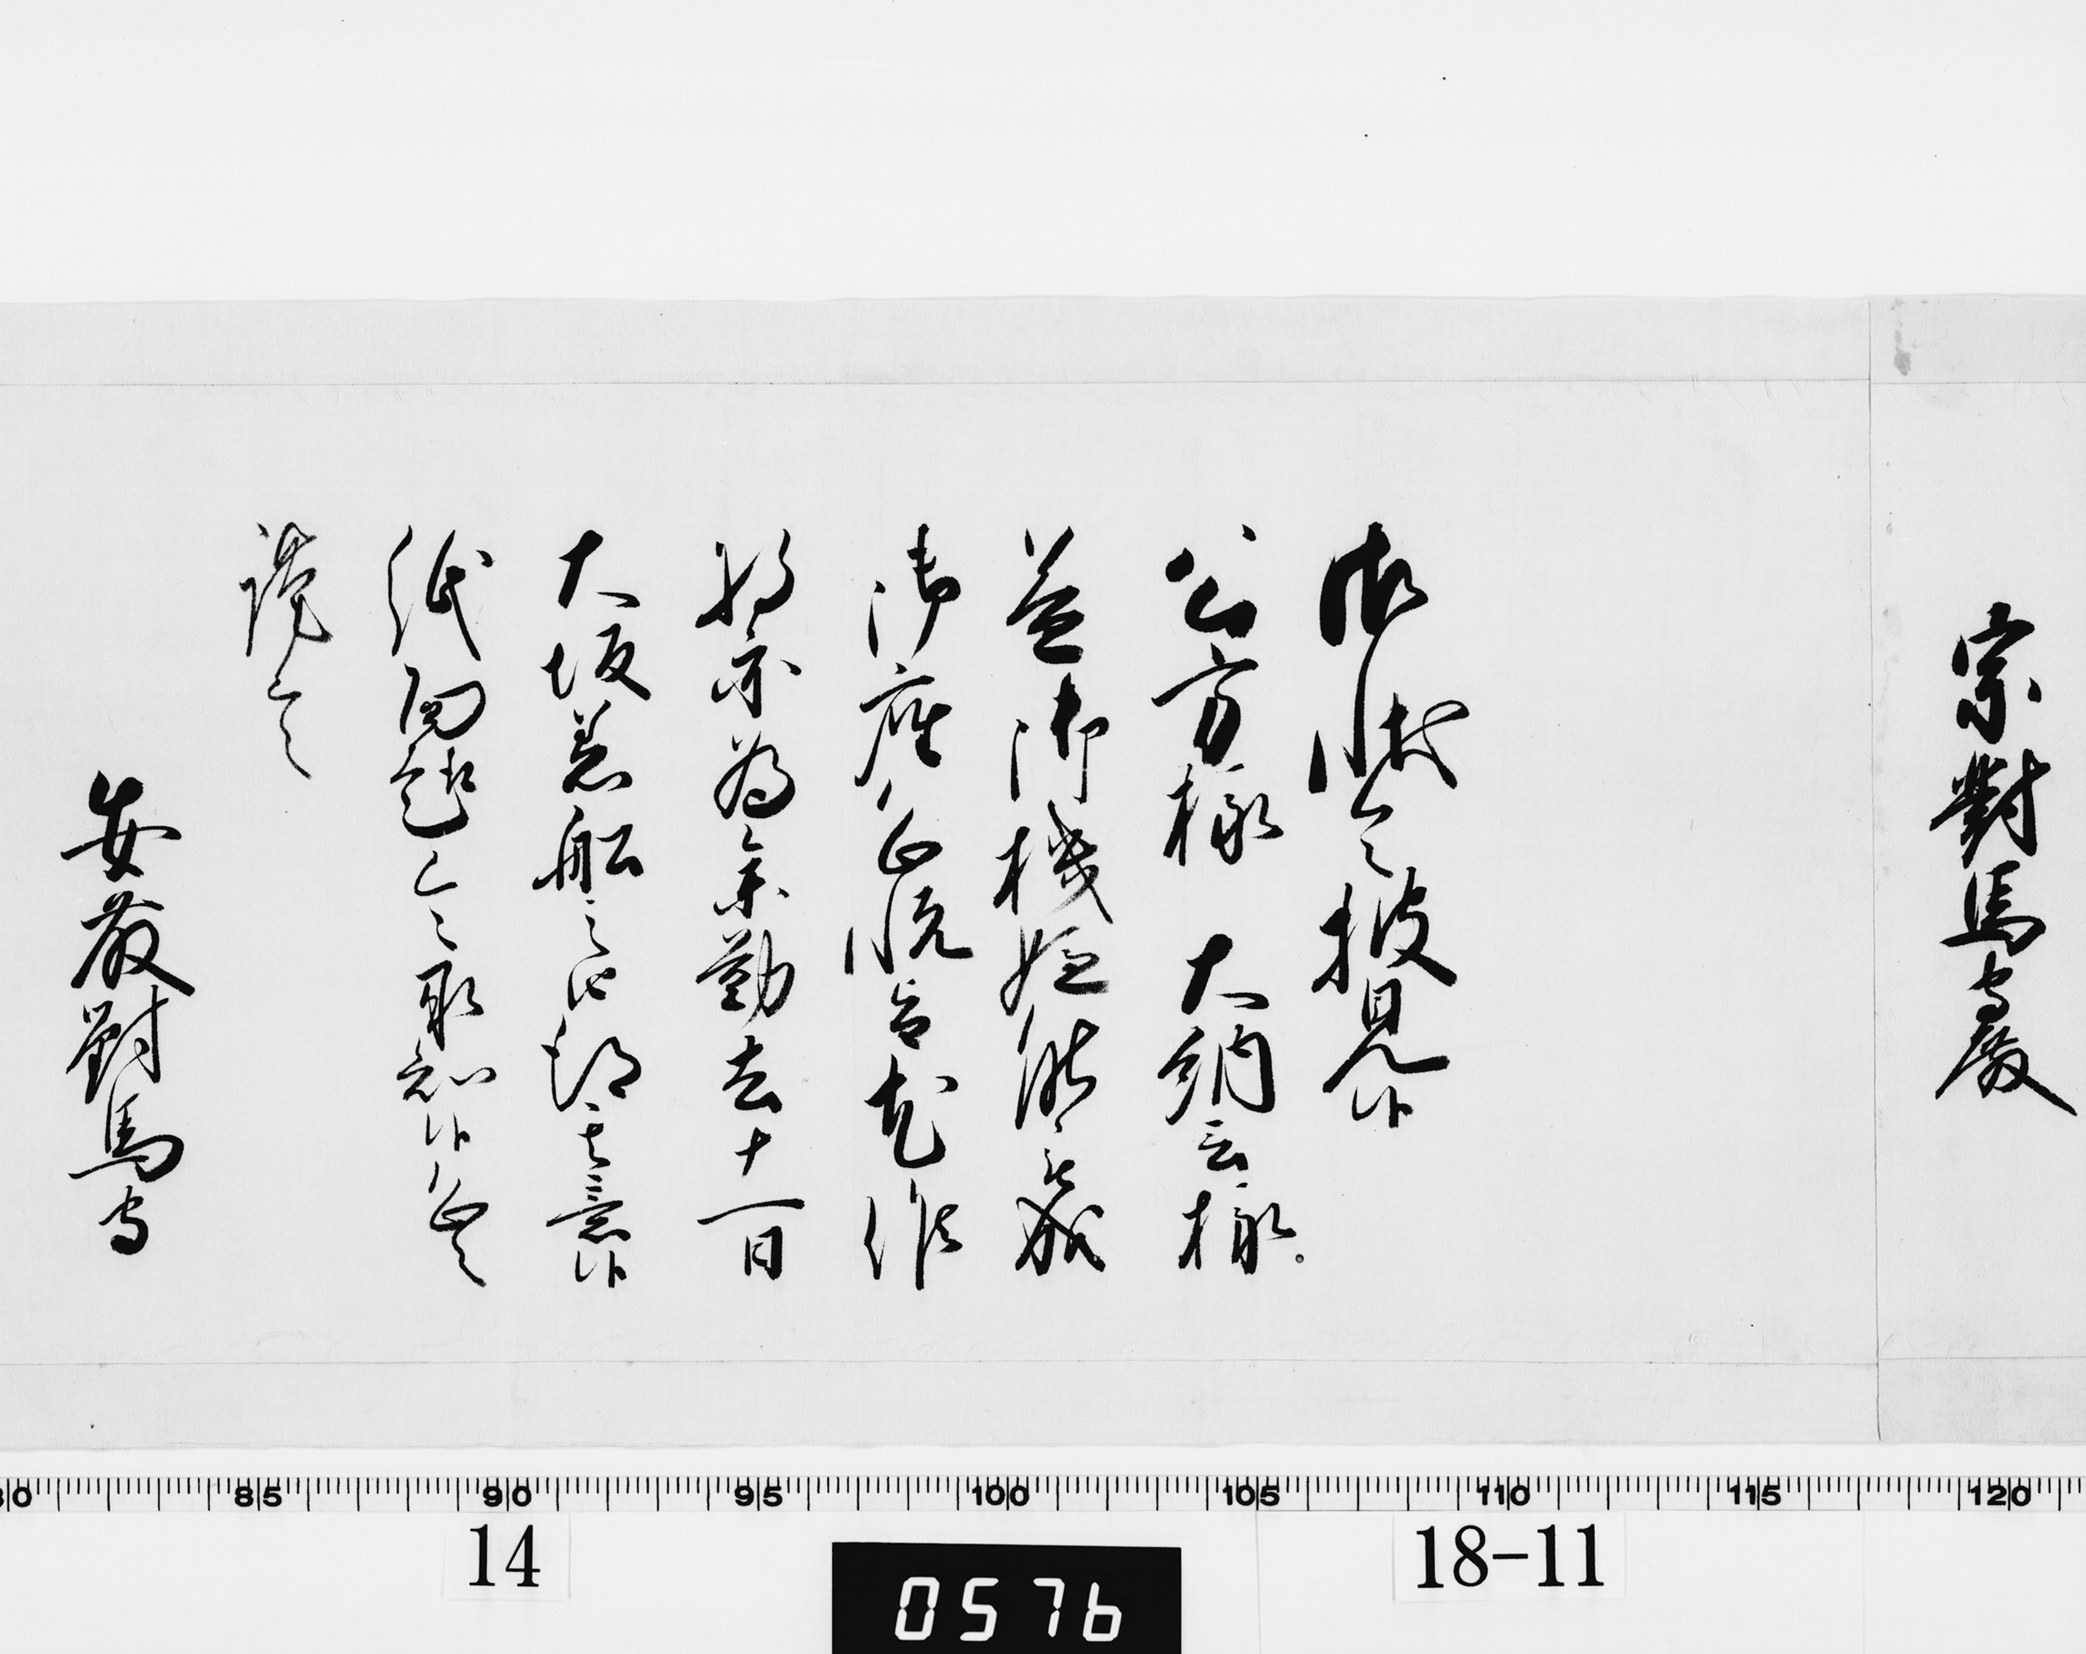 宗對馬守殿
御状令披見候
公方様 大納言様
益御機嫌能被成
御座恐悦旨尤候
将亦為参勤去十一日
大坂着船之由得其意候
紙面趣令承知候恐々
謹言
安藤對馬守
80 85 90 95 100 105 110 115 120
14
18-11
0576